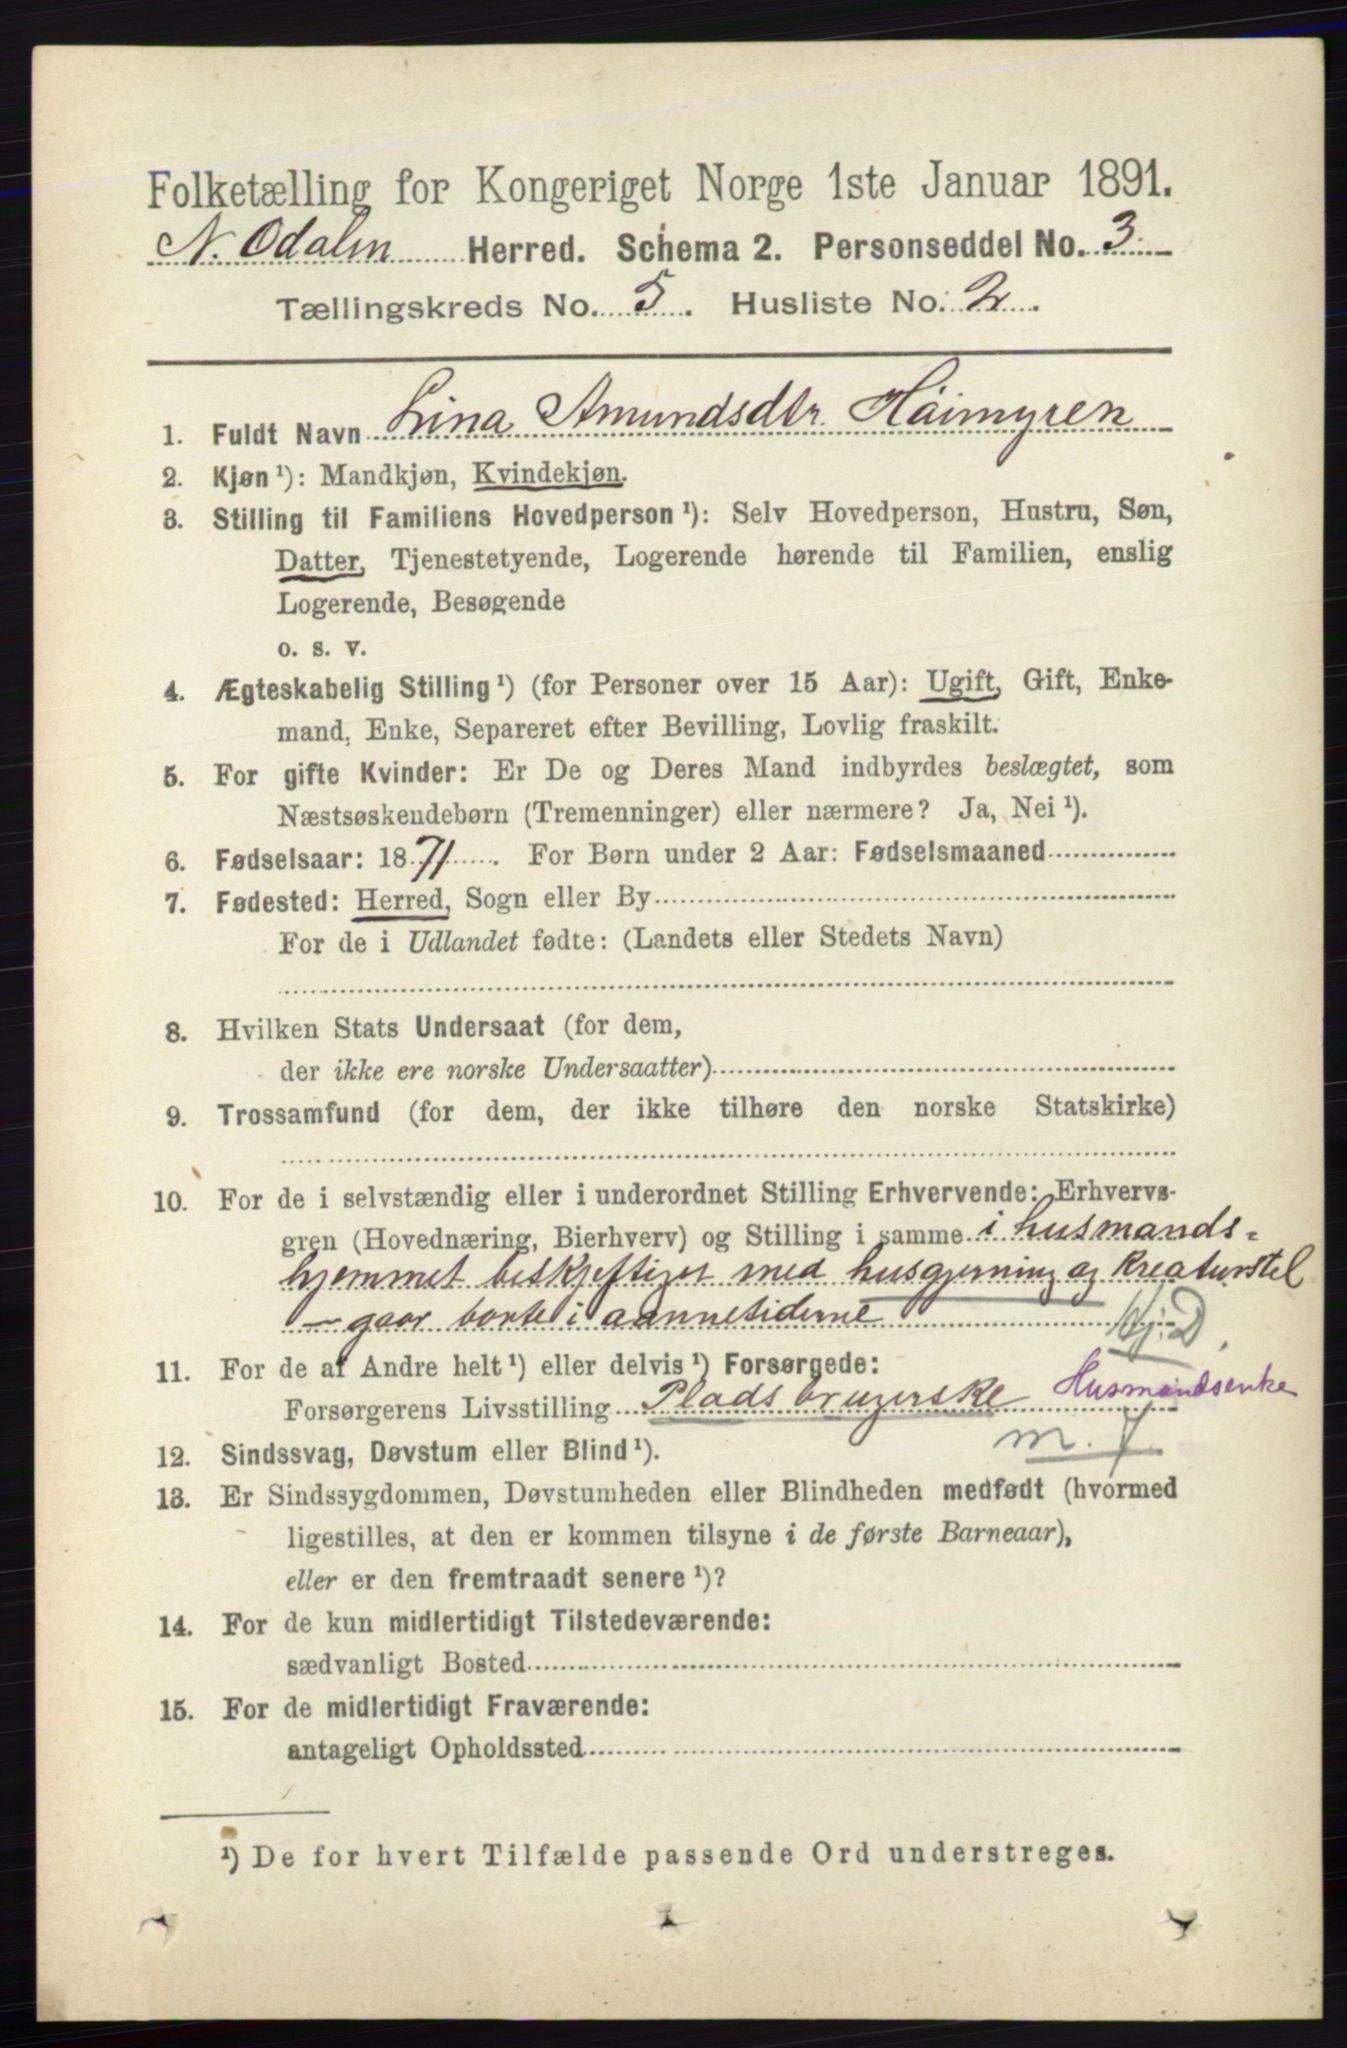 Folketælling for Kongeriget Norge 1ste Januar 1891.
N. Odalen Herred. Schema 2. Personseddel No. 3
Tællingskreds No. 5. Husliste No. 2.
1. Fuldt Navn Lina Amundsdtr. Håimyren
2. Kjøn ¹): Mandkjøn, Kvindekjøn.
3. Stilling til Familiens Hovedperson ¹): Selv Hovedperson, Hustru, Søn,
Datter, Tjenestetyende, Logerende hørende til Familien, enslig
Logerende, Besøgende
o. s. v.
4. Ægteskabelig Stilling ¹) (for Personer over 15 Aar): Ugift, Gift, Enke-
mand, Enke, Separeret efter Bevilling, Lovlig fraskilt.
5. For gifte Kvinder: Er De og Deres Mand indbyrdes beslægtet, som
Næstsøskendebørn (Tremenninger) eller nærmere? Ja, Nei ¹).
6. Fødselsaar: 1871. For Børn under 2 Aar: Fødselsmaaned
7. Fødested: Herred, Sogn eller By
For de i Udlandet fødte: (Landets eller Stedets Navn)
8. Hvilken Stats Undersaat (for dem,
der ikke ere norske Undersaatter)
9. Trossamfund (for dem, der ikke tilhøre den norske Statskirke)
10. For de i selvstændig eller i underordnet Stilling Erhvervende: Erhvervs-
gren (Hovednæring, Bierhverv) og Stilling i samme i husmands-
hjemmet beskjeftiget med husgjerning og kreaturstel
- gaar borte i aannetiderne Hj. D.
11. For de af Andre helt ¹) eller delvis ¹) Forsørgede:
Forsørgerens Livsstilling Pladsbrugerske Husmandsenke
12. Sindssvag, Døvstum eller Blind ¹). m. J
13. Er Sindssygdommen, Døvstumheden eller Blindheden medfødt (hvormed
ligestilles, at den er kommen tilsyne i de første Barneaar),
eller er den fremtraadt senere ¹)?
14. For de kun midlertidigt Tilstedeværende:
sædvanligt Bosted
15. For de midlertidigt Fraværende:
antageligt Opholdssted
¹) De for hvert Tilfælde passende Ord understreges.